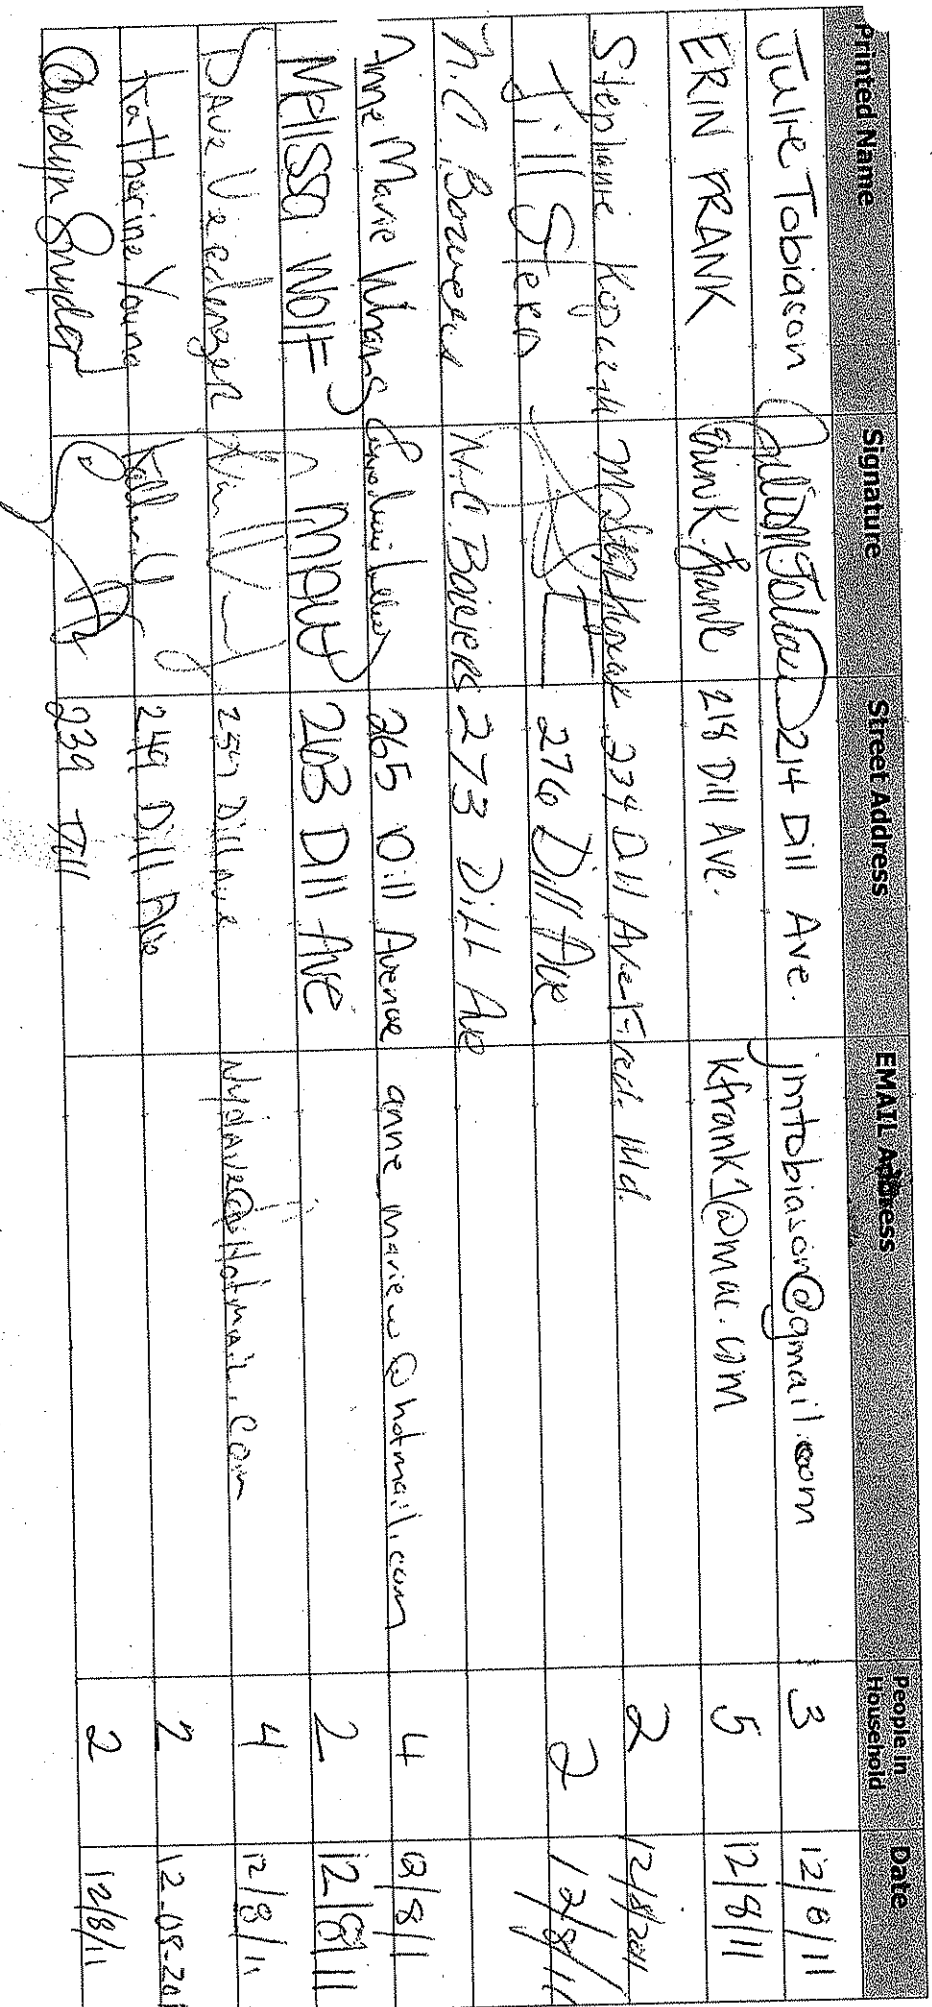 Printed Name Signature Street Address EMAIL Address People in Household Date
Julie Tobiason 214 Dill Ave. jmtobiason@gmail.com 3 12/8/11
ERIN FRANK Erin K. Frank 218 Dill Ave. kfrank1@mac.com 5 12/8/11
Stephanie 234 Dill Ave Fred. Md. 2 12/8/2011
Jill Stern 276 Dill Ave 2 12/8/11
N.C. Bowers N.C. Bowers 273 Dill Ave
Anne Marie 265 Dill Avenue anne mariew@hotmail.com 4 12/8/11
MElissa WOlF 263 Dill AVE 2 12/8/11
DAve 257 Dill Ave NydAve@Hotmail.com 4 12/8/11
Katherine Young 249 Dill Ave 2 12-08-201
Carolyn Snyder 239 Dill 2 12/8/11